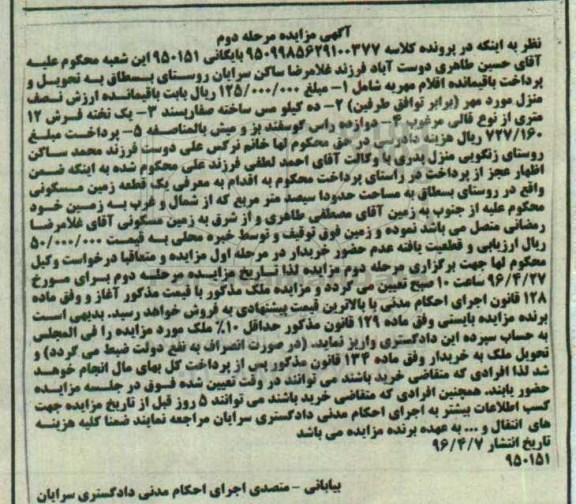 آگهی مزایده مرحله دوم
نظر به اینکه در پرونده کلاسه ۹۵۰۹۹۸۵۶۲۹۱۰۰۳۷۷ بایگانی ۹۵۰۱۵۱ این شعبه محکوم علیه
آقای حسین طاهری دوست آباد فرزند غلامرضا ساکن سرایان روستای بسطاق به تحویل و
پرداخت باقیمانده اقلام مهریه شامل ۱- مبلغ ۱۲۵/۰۰۰/۰۰۰ ریال بابت باقیمانده ارزش نصف
منزل مورد مهر (برابر توافق طرفین) ۲- ده کیلو مس ساخته صفارپسند ۳- یک تخته فرش ۱۲
متری از نوع قالی مرغوب ۴- دوازده راس گوسفند بز و میش بالمناصفه ۵- پرداخت مبلغ
۷۲۷/۱۶۰ ریال هزینه دادرسی در حق محکوم لها خانم نرگس علی دوست فرزند محمد ساکن
روستای زنگویی منزل پدری با وکالت آقای احمد لطفی فرزند علی محکوم شده به اینکه ضمن
اظهار عجز از پرداخت در راستای پرداخت محکوم به اقدام به معرفی یک قطعه زمین مسکونی
واقع در روستای بسطاق به مساحت حدودا سیصد متر مربع که از شمال و غرب به زمین خود
محکوم علیه از جنوب به زمین آقای مصطفی طاهری و از شرق به زمین مسکونی آقای غلامرضا
رمضانی متصل می باشد نموده و زمین فوق توقیف و توسط خبره محلی به قیمت ۵۰/۰۰۰/۰۰۰
ریال ارزیابی و قطعیت یافته عدم حضور خریدار در مرحله اول مزایده و متعاقبا درخواست وکیل
محکوم لها جهت برگزاری مرحله دوم مزایده لذا تاریخ مزایده مرحله دوم برای مورخ
۹۶/۴/۲۷ ساعت ۱۰ صبح تعیین می گردد و مزایده ملک مذکور با قیمت مذکور آغاز و وفق ماده
۱۲۸ قانون اجرای احکام مدنی با بالاترین قیمت پیشنهادی به فروش خواهد رسید. بدیهی است
برنده مزایده بایستی وفق ماده ۱۲۹ قانون مذکور حداقل ۱۰٪ ملک مورد مزایده را فی المجلس
به حساب سپرده این دادگستری واریز نماید. (در صورت انصراف به نفع دولت ضبط می گردد) و
تحویل ملک به خریدار وفق ماده ۱۳۴ قانون مذکور پس از پرداخت کل بهای مال انجام خواهد
شد لذا افرادی که متقاضی خرید باشند می توانند در وقت تعیین شده فوق در جلسه مزایده
حضور یابند. همچنین افرادی که متقاضی خرید باشند می توانند ۵ روز قبل از تاریخ مزایده جهت
کسب اطلاعات بیشتر به اجرای احکام مدنی دادگستری سرایان مراجعه نمایند ضمنا کلیه هزینه
های انتقال و ... به عهده برنده مزایده می باشد
تاریخ انتشار ۹۶/۴/۷
۹۵۰۱۵۱
بیابانی - متصدی اجرای احکام مدنی دادگستری سرایان